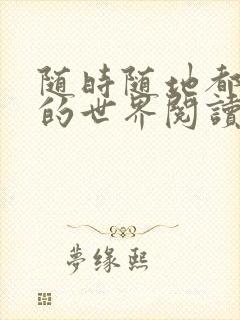 随時随地都
的世界閱讀
夢缘熙